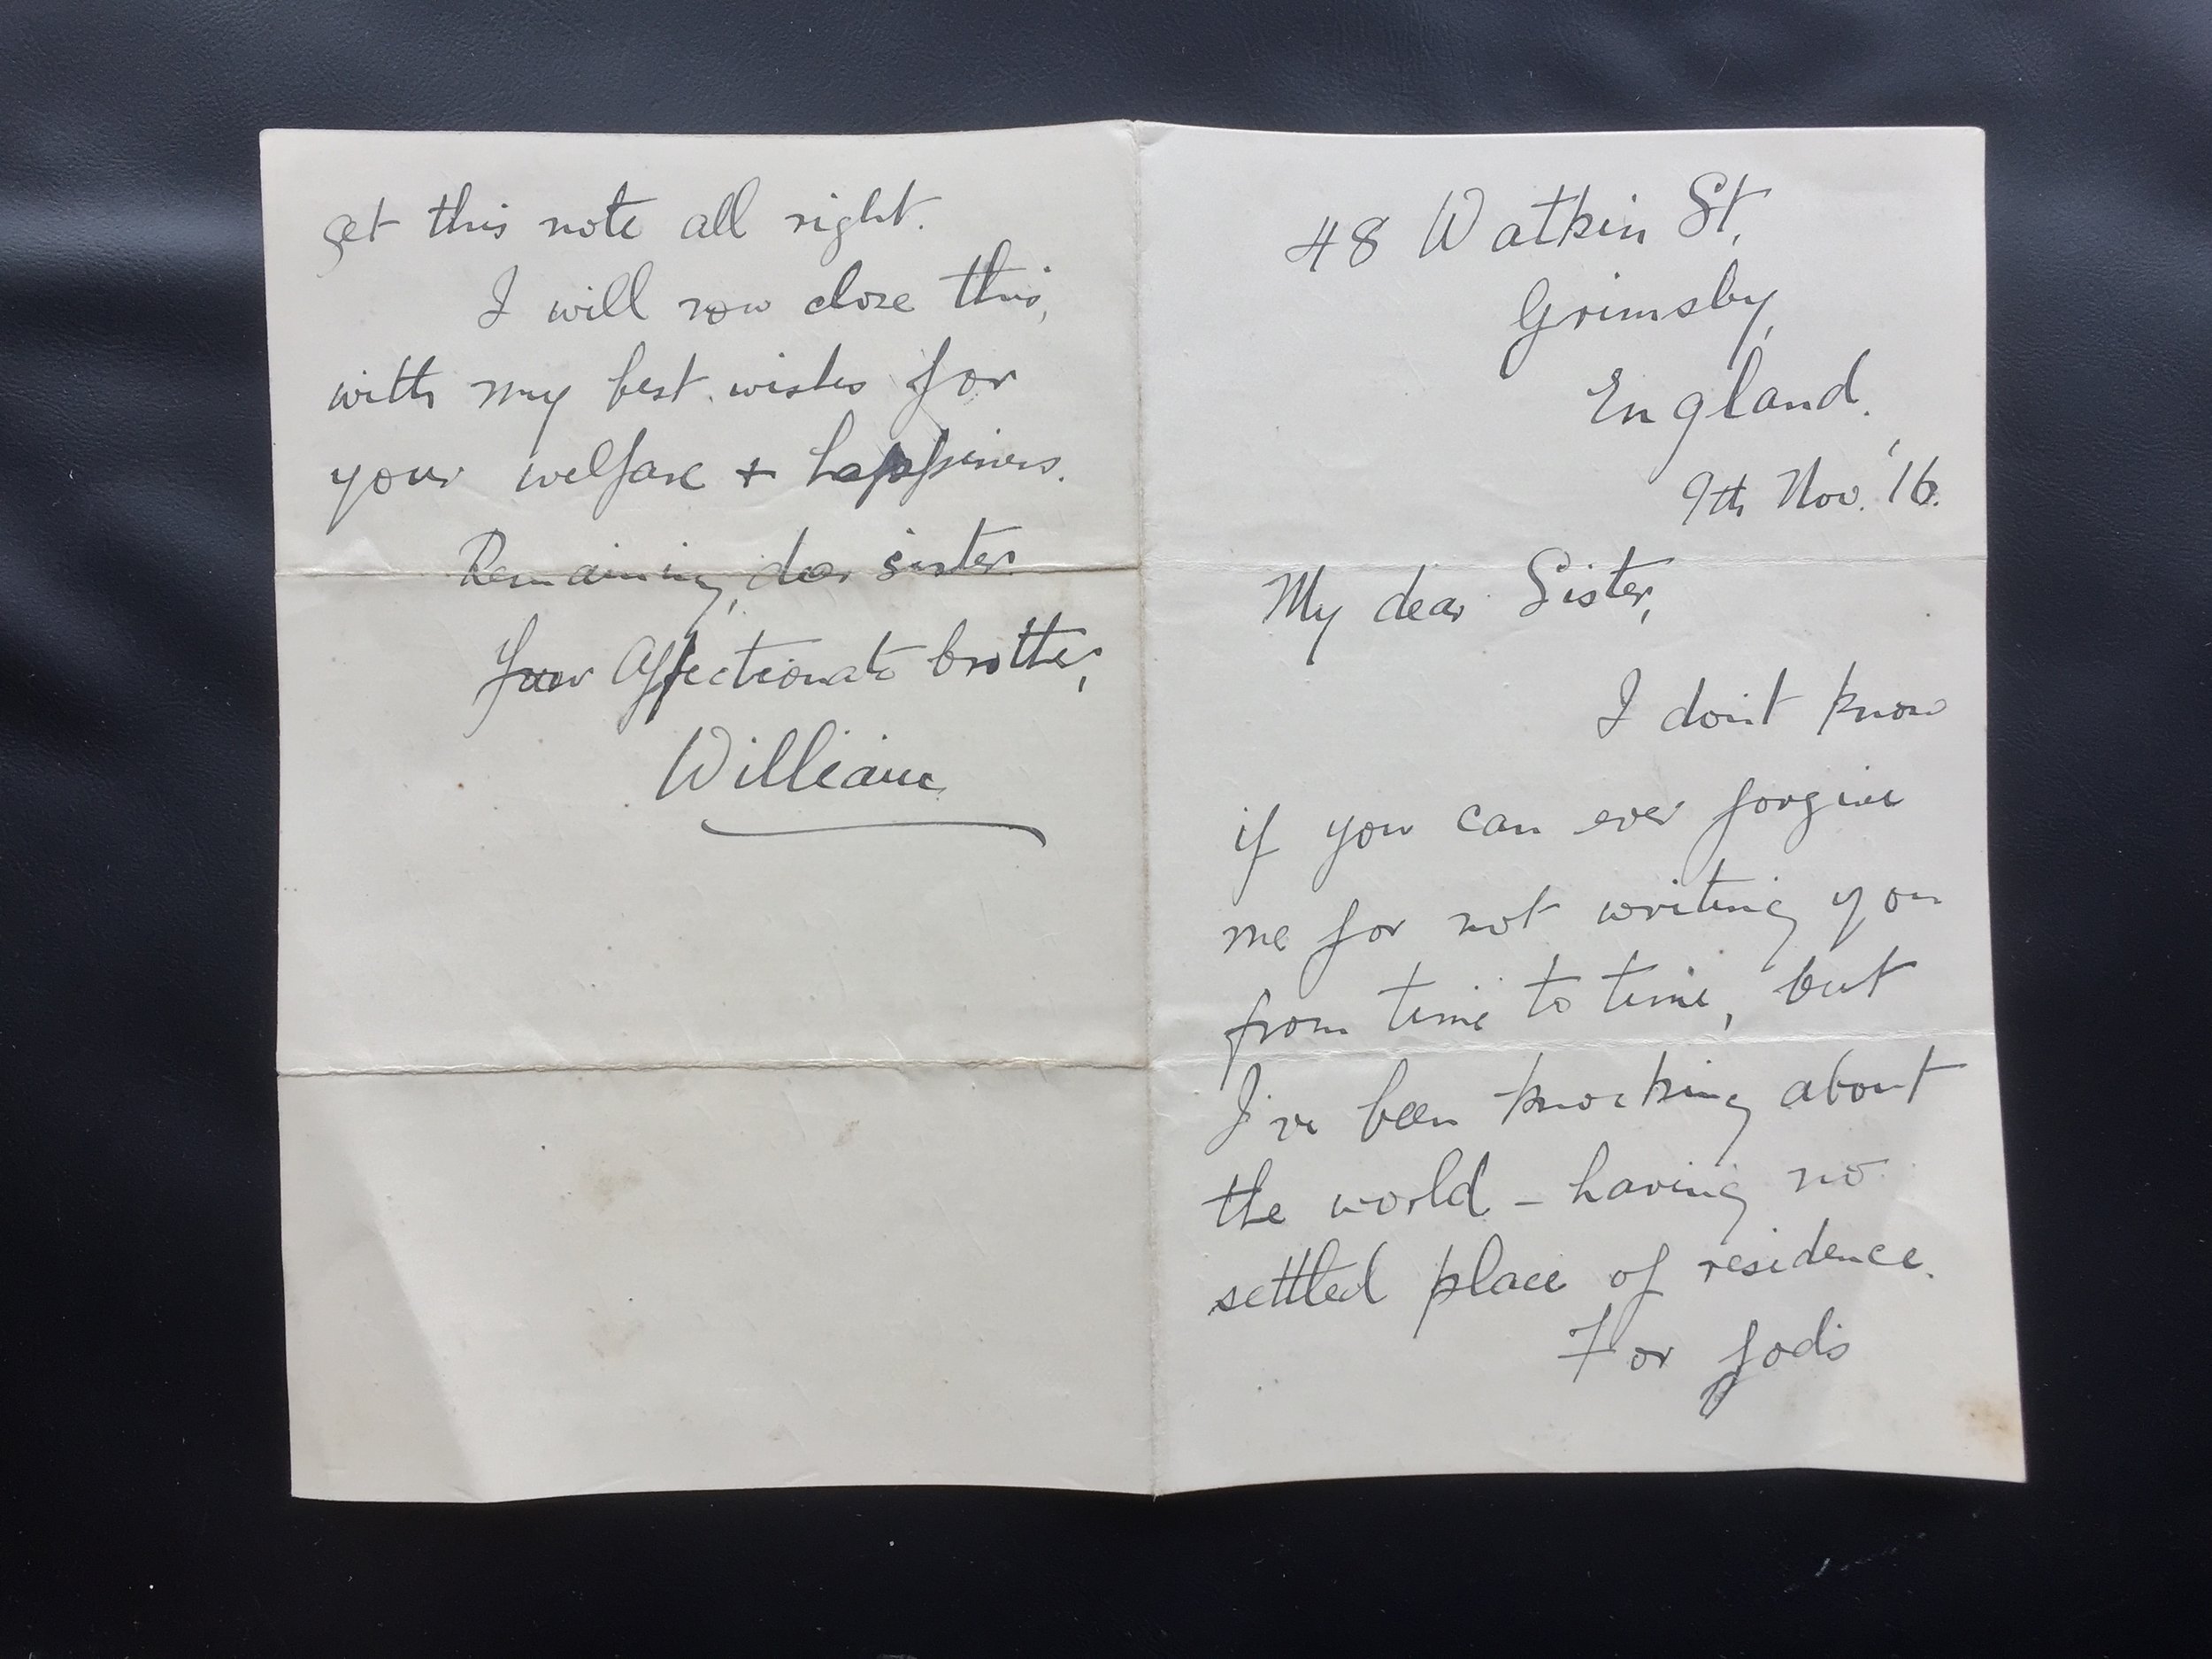 48 Watkin St,
Grimsby,
England.
9th Nov. '16.
My dear Sister,
I don't know
if you can ever forgive
me for not writing you
from time to time, but
I've been knocking about
the world - having no
settled place of residence.
For god's
get this note all right.
I will now close this,
with my best wishes for
your welfare + happiness.
Remaining, dear sister.
Your Affectionate brother,
William